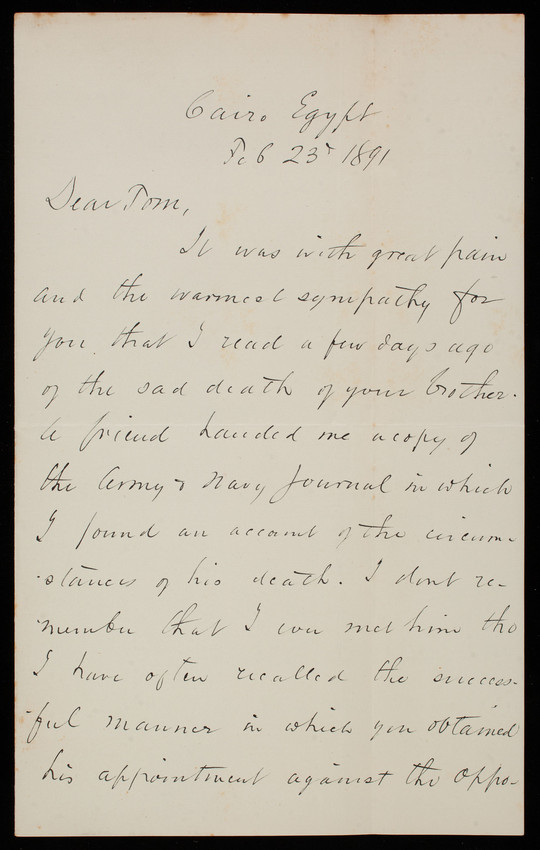 Cairo Egypt
Feb 23d 1891
Dear Tom,
It was with great pain
and the warmest sympathy for
you that I read a few days ago
of the sad death of your brother.
A friend handed me a copy of
the Army & Navy Journal in which
I found an account of the circum-
stances of his death. I dont re-
member that I ever met him tho
I have often recalled the success-
ful manner in which you obtained
his appointment against the oppo-